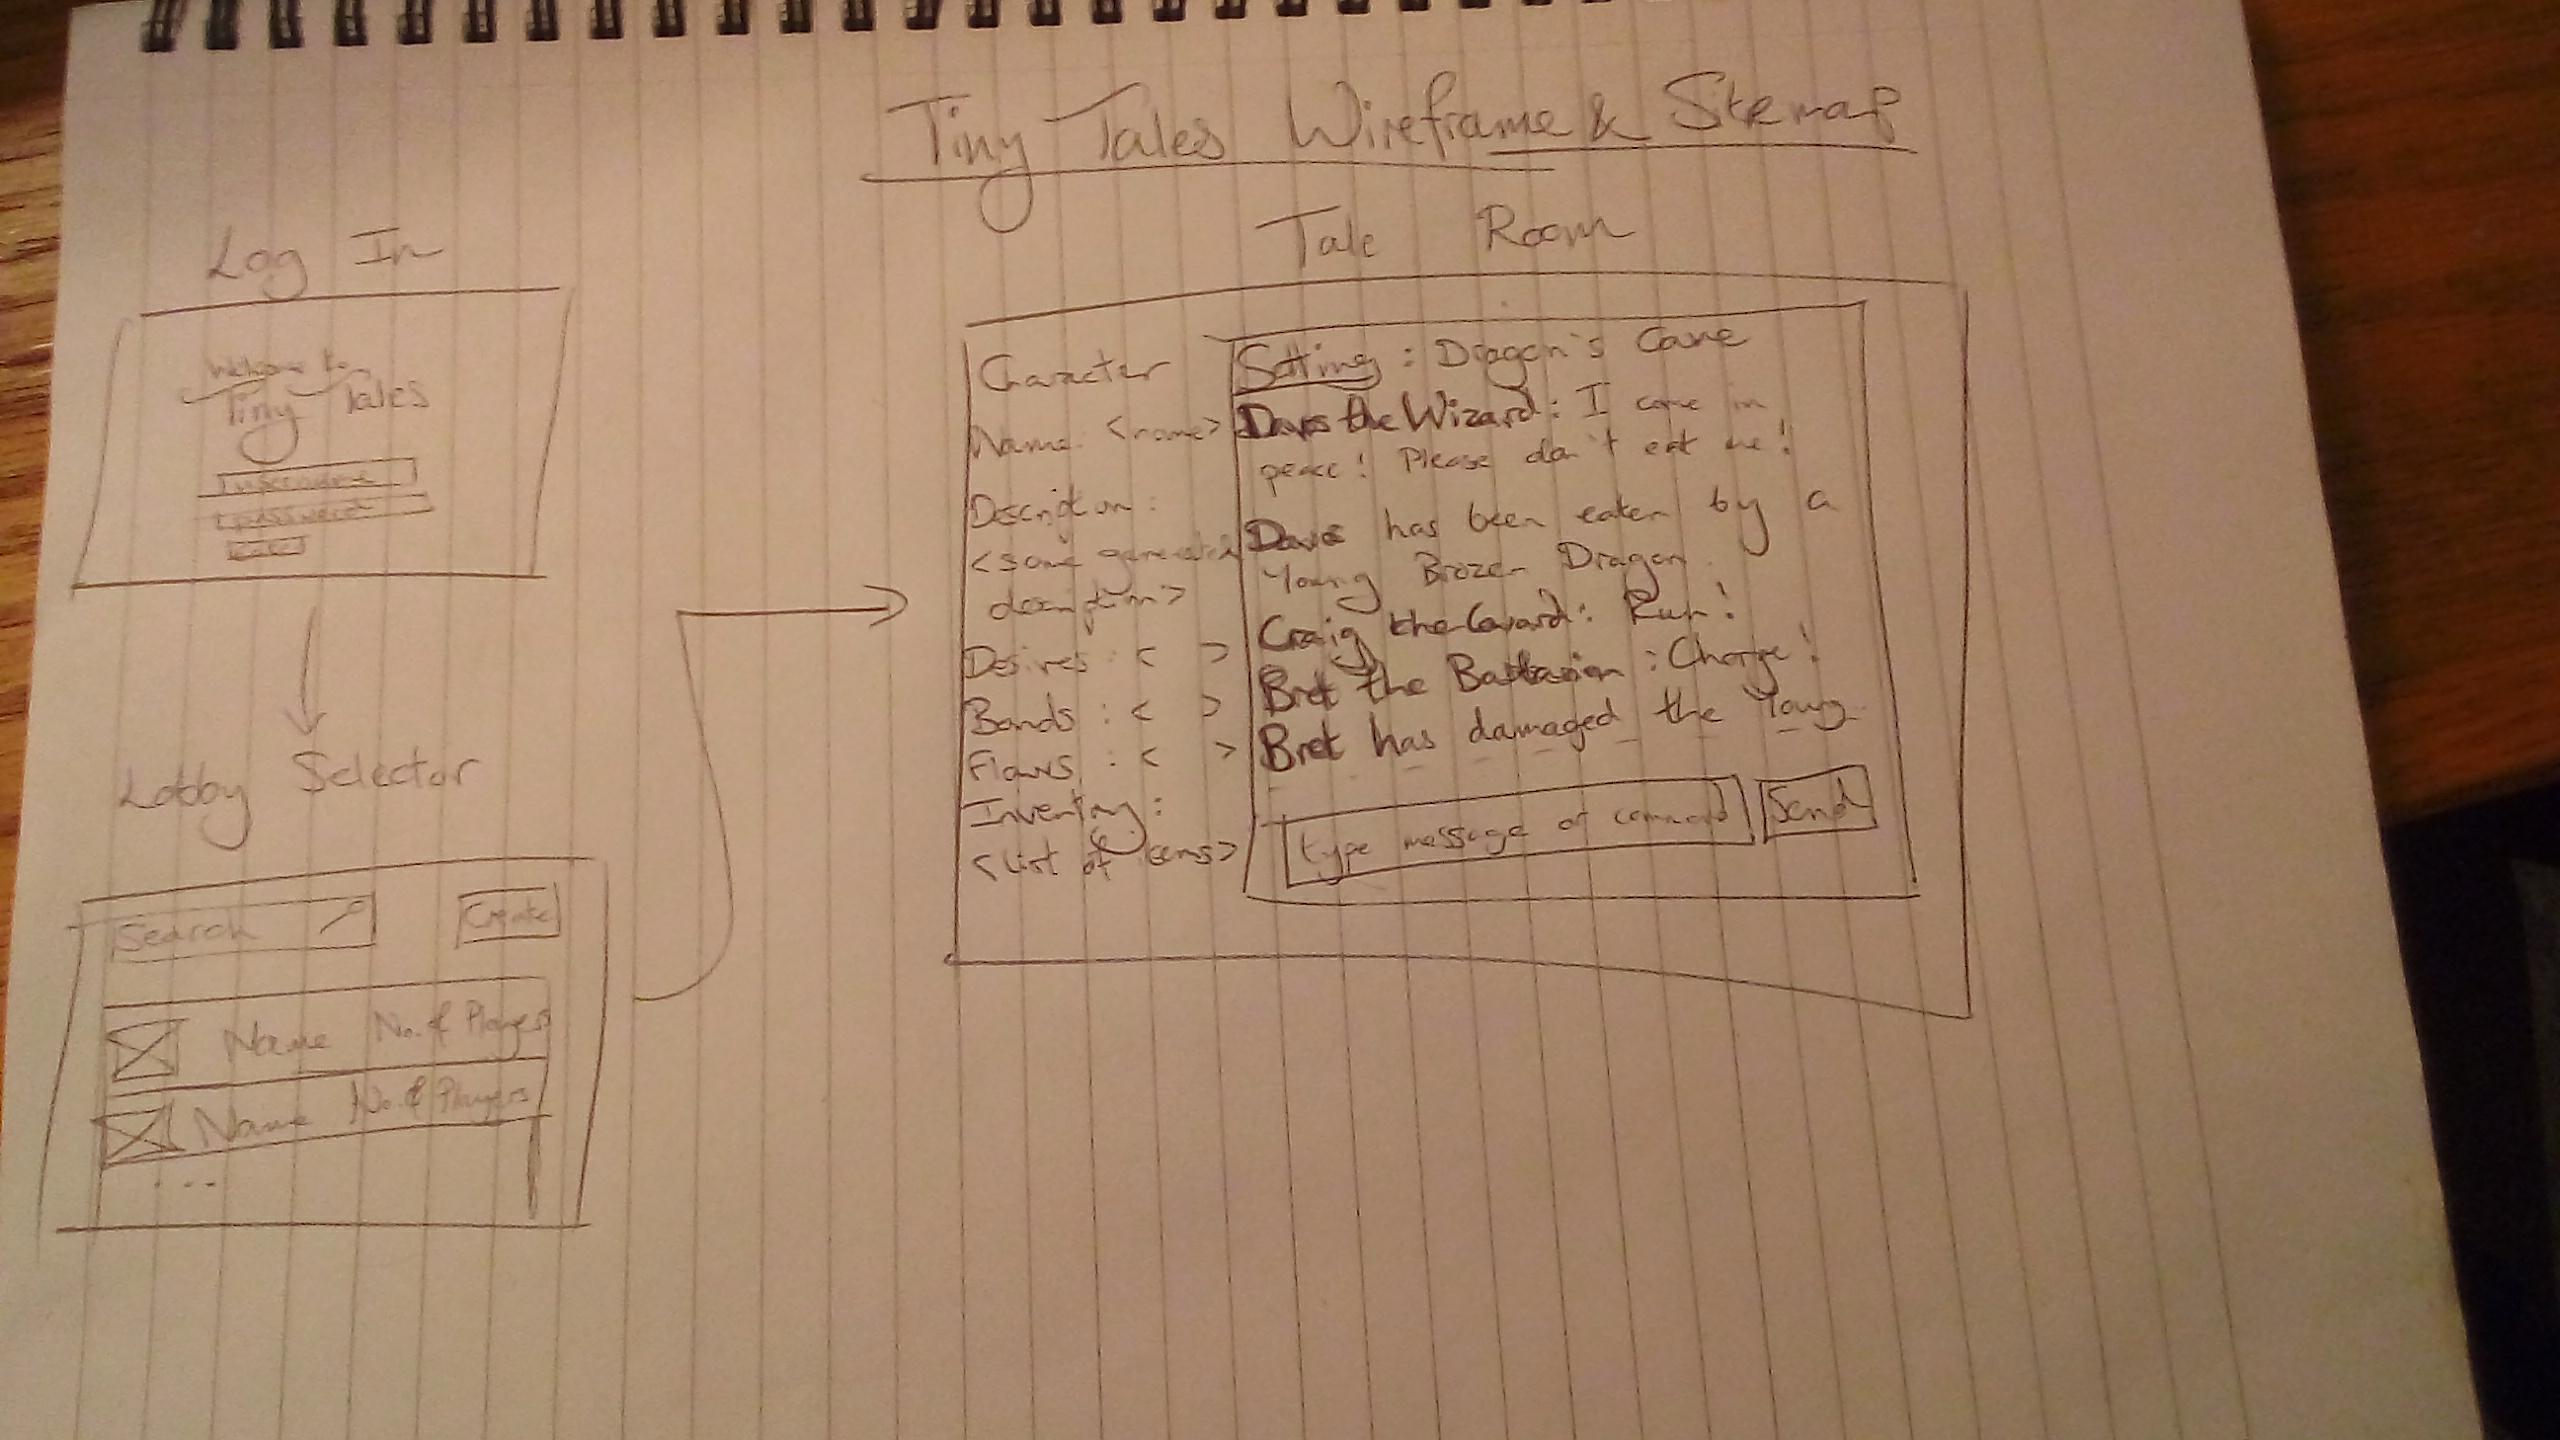 Tiny Tales Wireframe & Sitemap
Log In
Welcome to
Tiny Tales
username
password
Lobby Selector
Search
Create
Name No. of Players
Name No. of Players
...
Tale Room
Character
Name: <name>
Description:
<some generated
description>
Desires: < >
Bonds: < >
Flaws: < >
Inventory:
<List of items>
Setting: Dragon's Cave
Dave the Wizard: I come in
peace! Please don't eat me!
Dave has been eaten by a
Young Brozen Dragon.
Craig the Guard: Run!
Bret the Barbarian: Charge!
Bret has damaged the Young
type message or command
Send